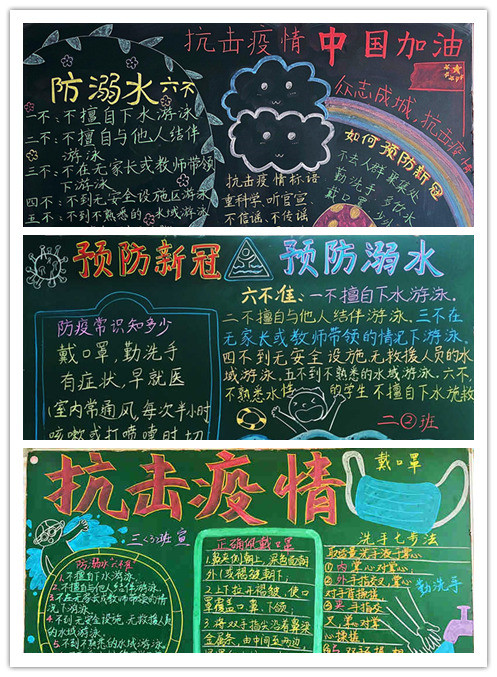 抗击疫情 中国加油
防溺水六不
一不：不擅自下水游泳
二不：不擅自与他人结伴
游泳
三不：不在无家长或教师带领
下游泳
四不：不到无安全设施区游泳
五不：不到不熟悉的水域游泳
抗击疫情标语
重科学，听官宣
不信谣，不传谣
众志成城，抗击疫情
如何预防新冠
不去人群聚集处
勤洗手，多饮水
戴口罩，少外
预防新冠
预防溺水
防疫常识知多少
戴口罩，勤洗手
有症状，早就医
室内常通风，每次半小时
咳嗽或打喷嚏时切
六不准：一不擅自下水游泳。
二不擅自与他人结伴游泳。三不在
无家长或教师带领的情况下游泳。
四不到无安全设施无救援人员的水
域游泳。五不到不熟悉的水域游泳。六不，
不熟悉水性 的学生不擅自下水施救
二②班
抗击疫情
三<3>班宣
防溺水六不准
1.不擅自下水游泳。
2.不擅自与他人结伴游泳。
3.不在无家长或教师带领的情
况下游泳。
4.不到无安全设施、无救援人员
的水域游泳。
5.不到不熟悉的水域游泳。
正确佩戴口罩
1.鼻夹侧朝上，深色面朝
外(或褶皱朝下)
2.上下拉开褶皱，使口
罩覆盖口、鼻、下颌；
3.将双手指尖沿着鼻梁
金属条，由中间至两边，
戴口罩
洗手七步法
取适量洗手液于掌心
①内 掌心对掌心
②外 手指交叉，掌心
对手背揉搓
③夹 手指交
叉，掌心对掌
心揉搓，
勤洗手